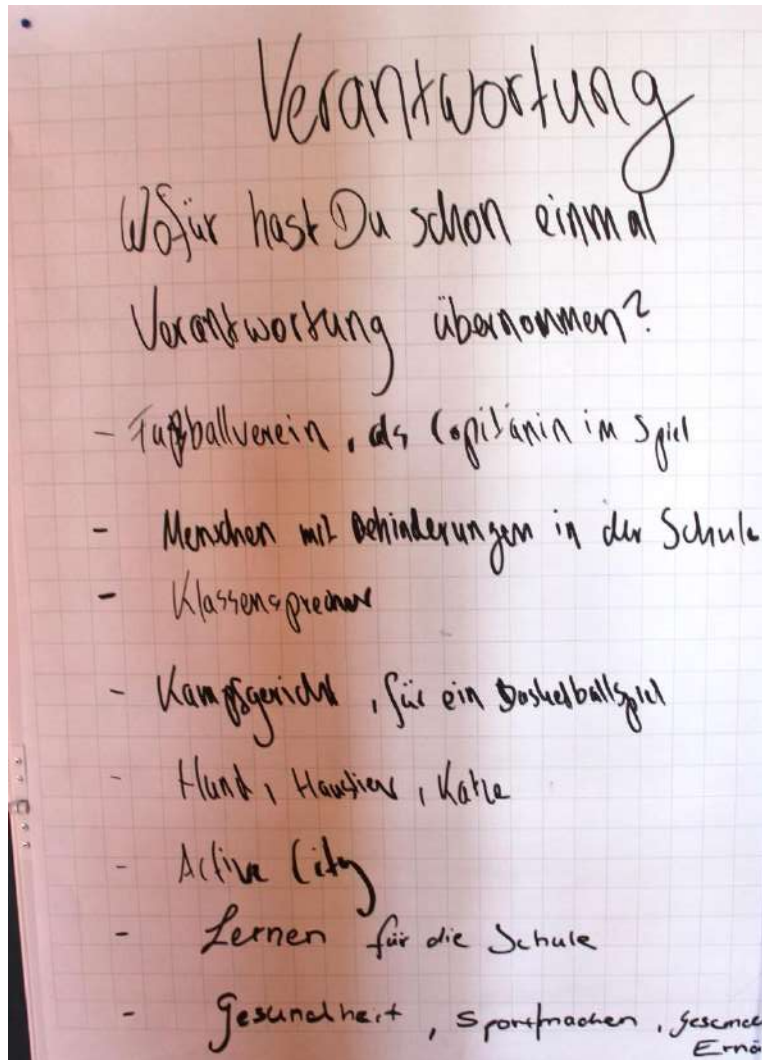 Verantwortung
Wofür hast Du schon einmal
Verantwortung übernommen?
- Fußballverein, als Capitänin im Spiel
- Menschen mit Behinderungen in der Schule
- Klassensprecher
- Kampfgericht, für ein Basketballspiel
- Hund, Haustier, Katze
- Active City
- Lernen für die Schule
- Gesundheit, Sportmachen,